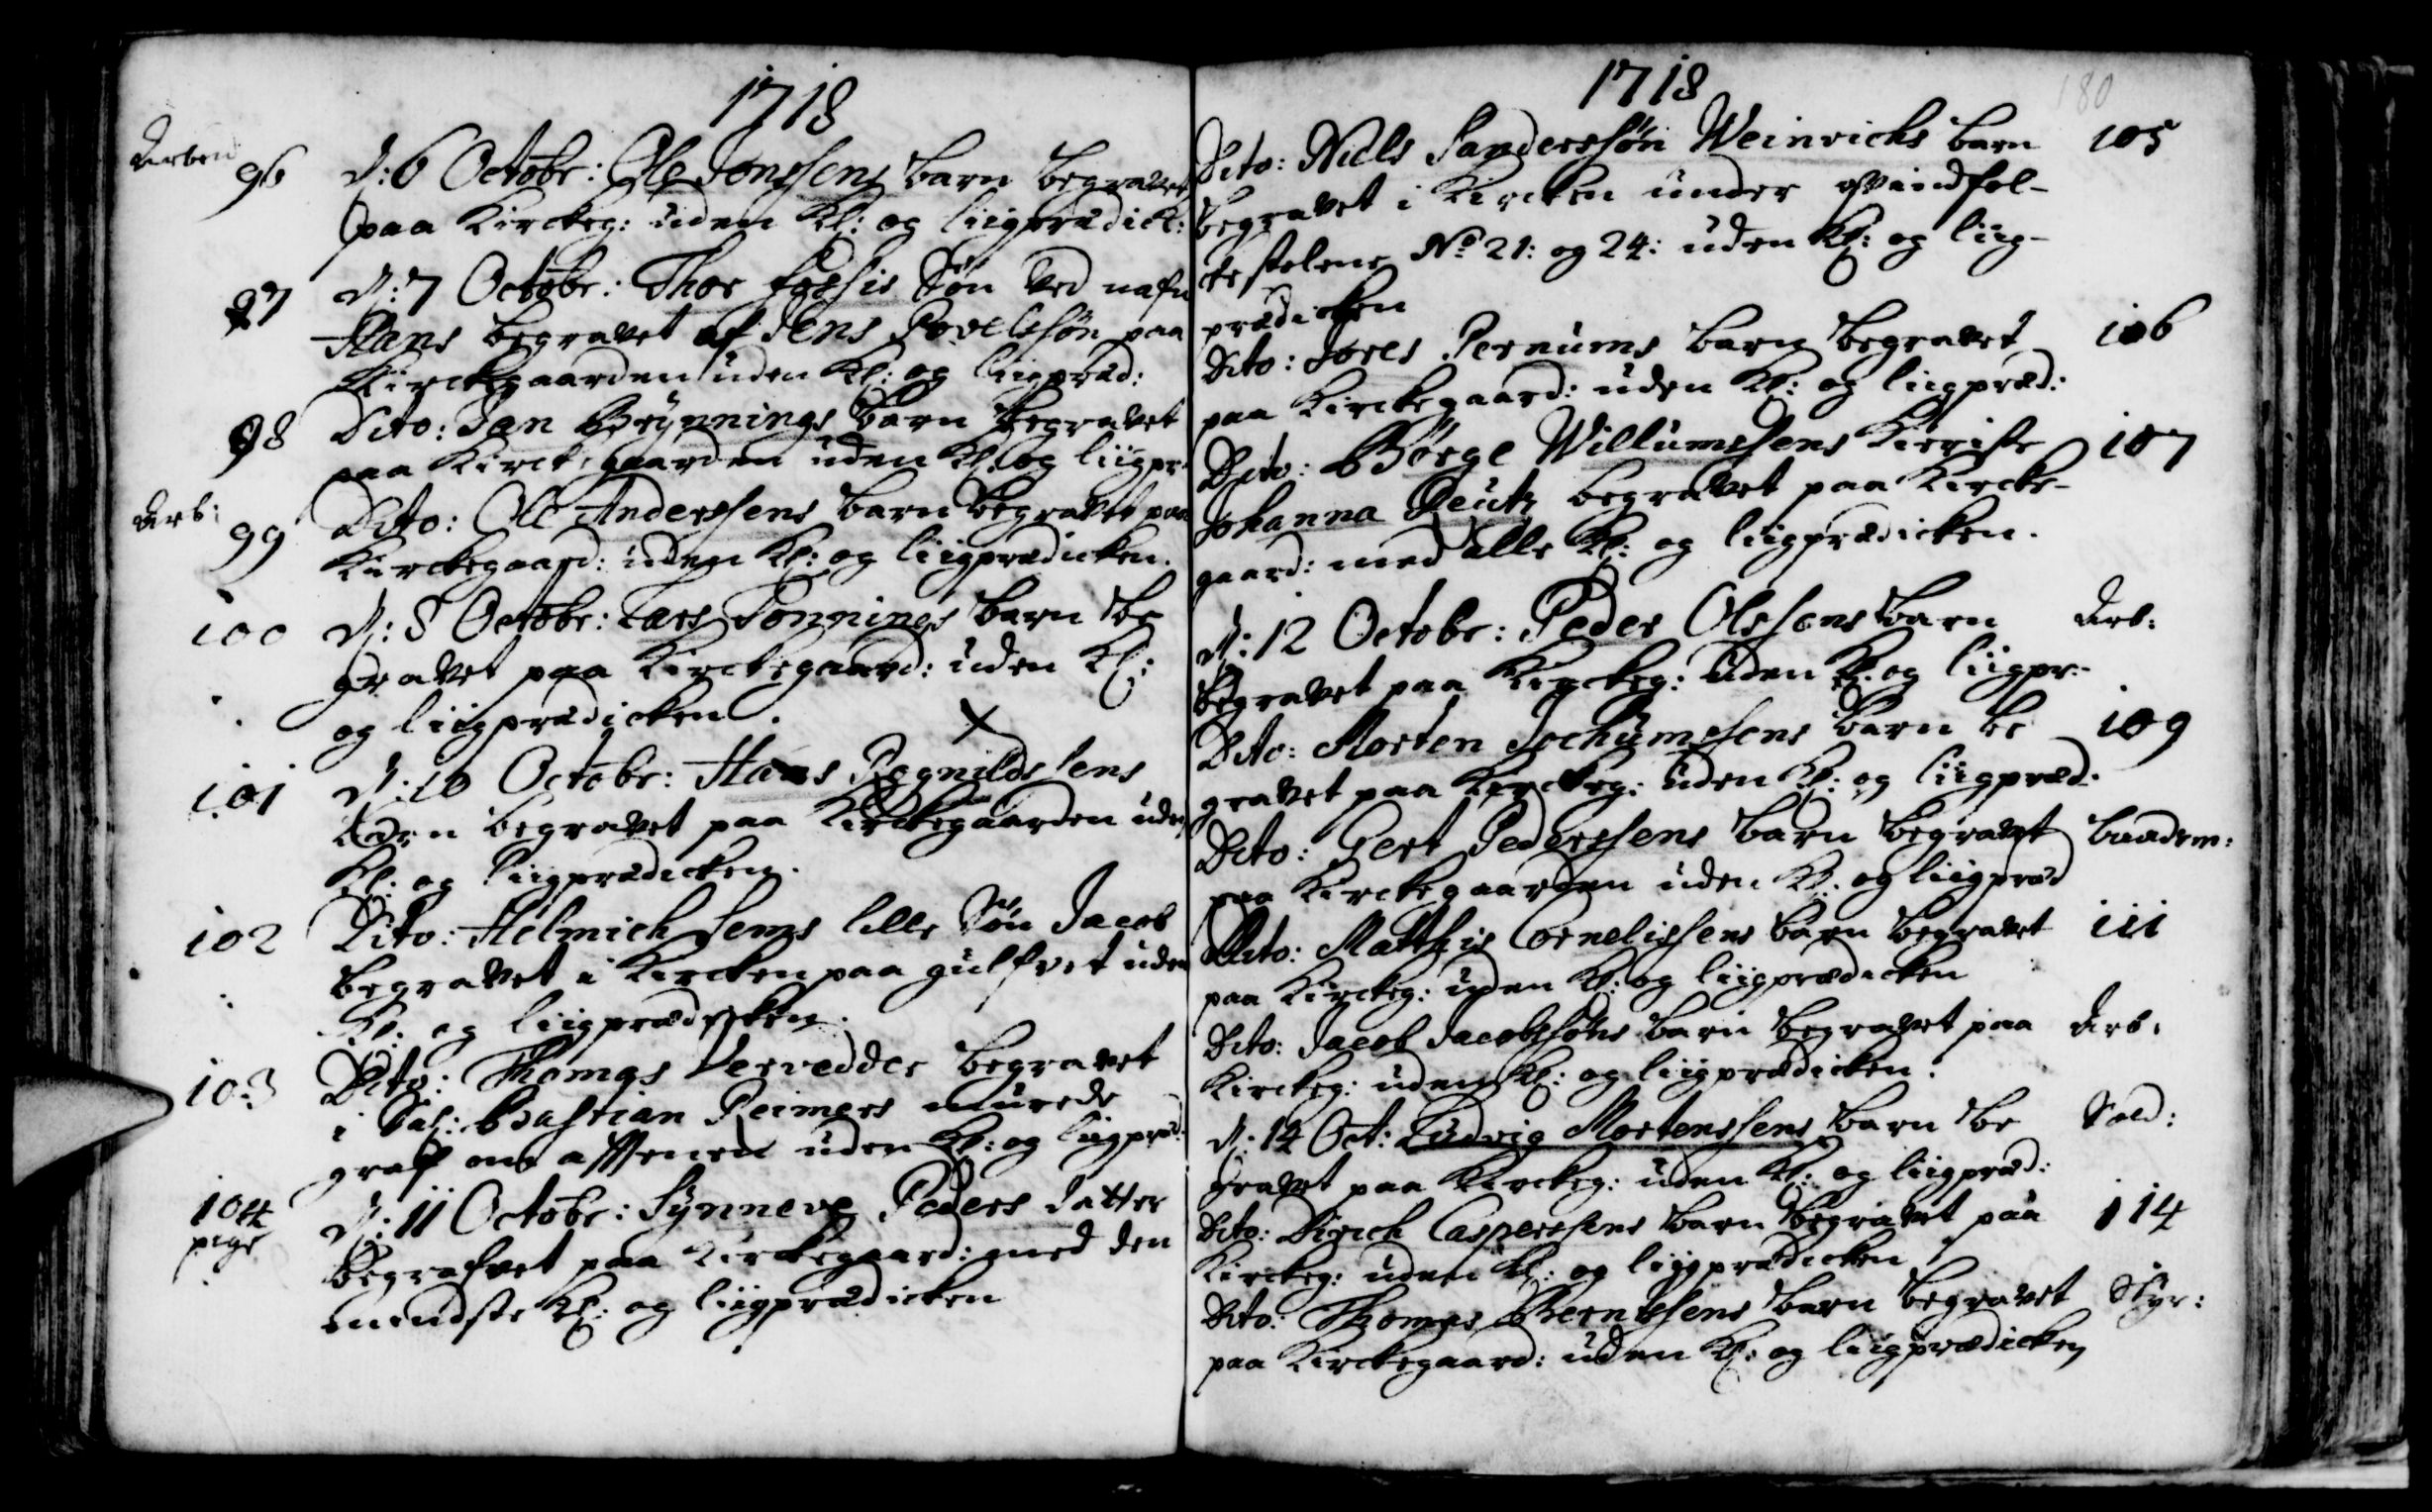 1718
Arben
96 D: 6 Octobr: Ole Jonssens barn begravet
paa Kirckeg: uden Kl: og liigprædick:
97 D: 7 Octobr: Thor fossis Søn ved nafn
Hans begravet af Jens Povelsøn paa
Kirckegaarden uden Kl: og liigpræd:
98 Dito: Jan Brÿnnings barn begravet
paa Kirckegaarden uden Kl: og liigpr:
Arb:
99 Dito: Ole Anderssens barn begravet paa
Kirckegaard: uden Kl: og liigprædicken.
100 D: 8 Octobr: Lars Ponnings barn be
gravet paa Kirckegaard: uden Kl:
og liigprædicken.
X
101 D: 10 Octobr: Hans Rognildssens
barn begravet paa Kirckegaarden uden
Kl: og liigprædicken.
102 Dito: Helmich Jems lille Søn Jacob
begravet i Kircken paa gulfvet uden
Kl: og liigprædicken.
103 Dito: Thomas Vervedder begravet
i Sal: Bastian Reimers murede
graf om afftenen uden Kl: og liigpræd:
104 D: 11 Octobr: Sÿnneve Peders datter
pige begrafvet paa Kirckegaard: med den
mindste Kl: og liigprædicken
1718
180
Dito: Niels Sanderssøn Weinrichs barn 105
begravet i Kircken under qvindfol-
ke stolene No 21: og 24: uden Kl: og liig-
prædicken
Dito: Jores Pernums barn begravet 106
paa Kirckegaard: uden Kl: og liigpræd:
Dito: Børge Willumssens Kieriste 107
Johanna Reutz begravet paa Kircke-
gaard: med alle Kl: og liigprædicken.
D: 12 Octobr: Peder Olssens barn Arb:
begravet paa Kirckeg: uden Kl: og liigpr:
Dito: Morten Jochumssens barn be 109
gravet paa Kirckeg: uden Kl: og liigpræd:
Dito: Gert Pederssens barn begravet baadsm:
paa Kirckegaarden uden Kl: og liigpræd
Dito: Matthis Cornelissens barn begravet 111
paa Kirckeg: uden Kl: og liigprædicken
Dito: Jacob Jacobsøns barn begravet paa Arb:
Kirckeg: uden Kl: og liigprædicken.
D: 14 Oct: Ludvig Mortenssens barn be Sold:
gravet paa Kirckeg: uden Kl: og liigpræd:
Dito: Dirich Casperssens barn begravet paa 114
Kirckeg: uden Kl: og liigprædicken
Dito: Thomas Berntssens barn begravet Styr:
paa Kirckegaard: uden Kl: og liigprædicken